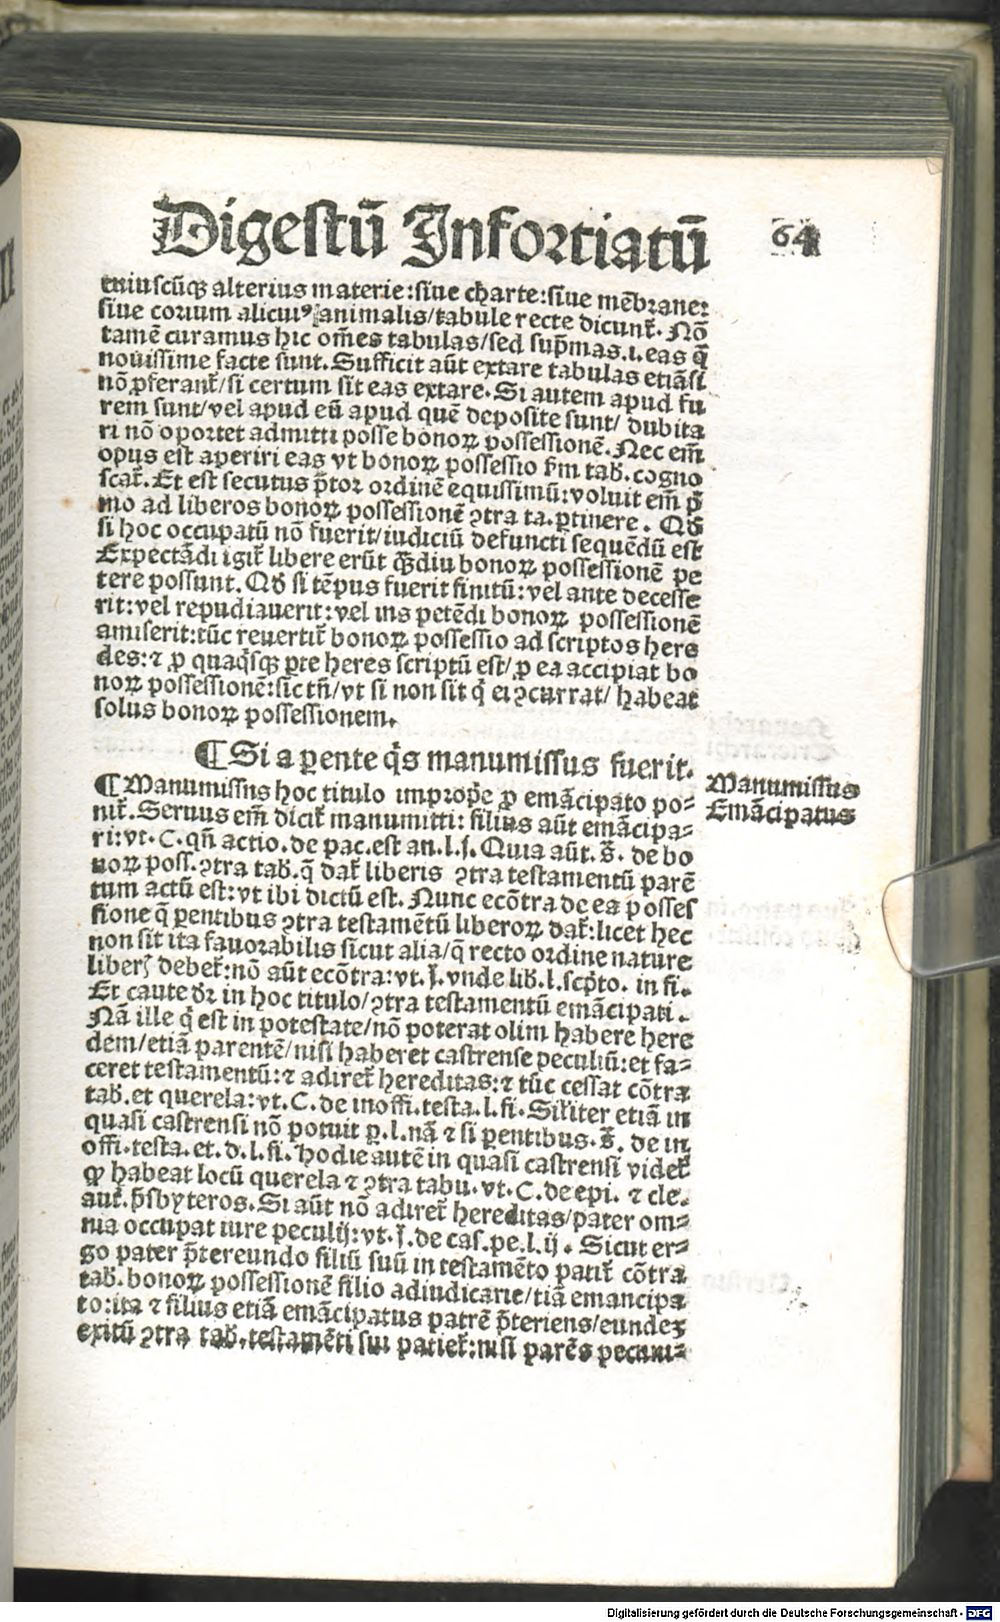 Digestū Infortiatū 64
cuiuscūqꝫ alterius materie:siue charte:siue mēbrane:
siue corium alicuiꝰ animalis/tabule recte dicunt̄. Nō
tamē curamus hic om̄es tabulas/sed sup̄mas.i.eas q̄
nouissime facte sunt. Sufficit aūt extare tabulas etiāsi
nō ꝓferant̄/si certum sit eas extare. Si autem apud fu
rem sunt/vel apud eū apud quē deposite sunt/ dubita
ri nō oportet admitti posse bonoꝝ possessionē. Nec em̄
opus est aperiri eas vt bonoꝝ possessio ẜm tab̄. cogno
scat̄. Et est secutus p̄tor ordinē equissimū:voluit em̄ p̄
mo ad liberos bonoꝝ possessionē ꝯtra ta.ꝑtinere. Qḋ
si hoc occupatū nō fuerit/iudiciū defuncti sequēdū est
Expectādi igit̄ libere erūt qᷓdiu bonoꝝ possessionē pe
tere possunt. Qḋ si tēpus fuerit finitū:vel ante decesse
rit:vel repudiauerit:vel ius petēdi bonoꝝ possessionē
amiserit:tūc reuertit̄ bonoꝝ possessio ad scriptos here
des:⁊ ꝓ quaq̇sqꝫ ꝑte heres scriptū est/ ꝓ ea accipiat bo
noꝝ possessionē:sic tn̄/vt si non sit q̇ ei ꝯcurrat/ habeat
solus bonoꝝ possessionem.
¶ Si a ꝑente q̇s manumissus fuerit.
Manumissus
Emācipatus
¶ Manumissus hoc titulo improp̄e ꝓ emācipato po⸗
nit̄. Seruus em̄ dicit̄ manumitti: filius aūt emācipa⸗
ri:vt. C. qn̄ actio.de pac.est an.l.j. Quia aūt. s̄. de bo
noꝝ poss. ꝯtra tab̄. q̄ dat̄ liberis ꝯtra testamentū parē
tum actū est:vt ibi dictū est. Nunc ecōtra de ea posses
sione q̄ ꝑentibus ꝯtra testamētū liberoꝝ dat̄:licet hec
non sit ita fauorabilis sicut alia/q̄ recto ordine nature
liberꝭ debet̄:nō aūt ecōtra:vt. j̄. vnde lib̄. l. scp̄to. in fi.
Et caute dr̄ in hoc titulo/ꝯtra testamentū emācipati.
Nā ille q̇ est in potestate/nō poterat olim habere here
dem/etiā parentē/nisi haberet castrense peculiū:et fa⸗
ceret testamentū:⁊ adiret̄ hereditas:⁊ tūc cessat cōtra
tab̄. et querela:vt. C. de inoffi. testa. l. fi. Sil̄iter etiā in
quasi castrensi nō potuit ꝑ. l. nā ⁊ si ꝑentibus. s̄. de in
offi. testa. et. d. l. fi. Hodie autē in quasi castrensi videt̄
ꝙ habeat locū querela ⁊ ꝯtra tabu. vt. C. de epi. ⁊ cle.
aut̄. p̄sbyteros. Si aūt nō adiret̄ hereditas/pater om⸗
nia occupat iure peculij:vt. j̄. de cas. pe. l. ij. Sicut er⸗
go pater p̄tereundo filiū suū in testamēto patit̄ cōtra
tab̄. bonoꝝ possessionē filio adiudicarie/tiā emancipa
to:ita ⁊ filius etiā emācipatus patrē p̄teriens/eundez
exitū ꝯtra tab̄. testamēti sui patiet̄:nisi parēs pecuni⸗
Digitalisierung gefördert durch die Deutsche Forschungsgemeinschaft - DFG